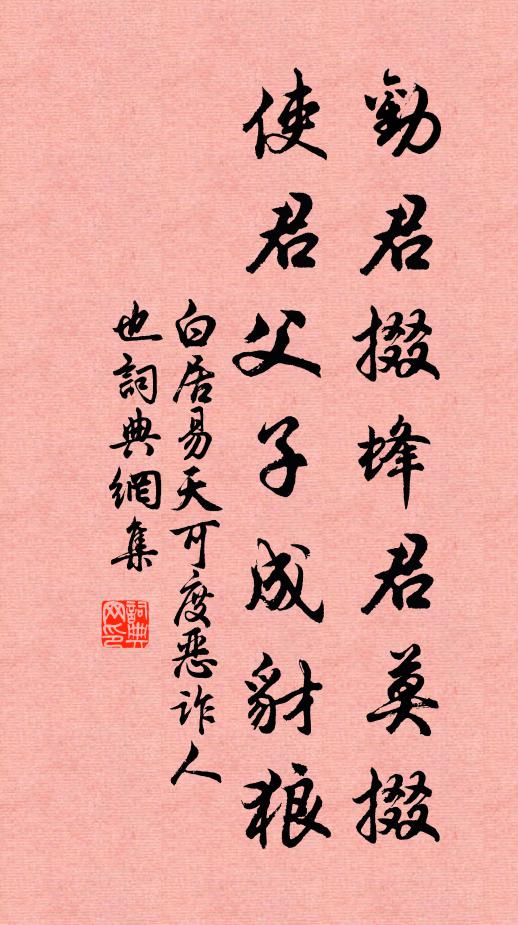 勸君掇蜂君莫掇
使君父子成豺狼
白居易天可度惡詐人
也詞典網集
詞典網印